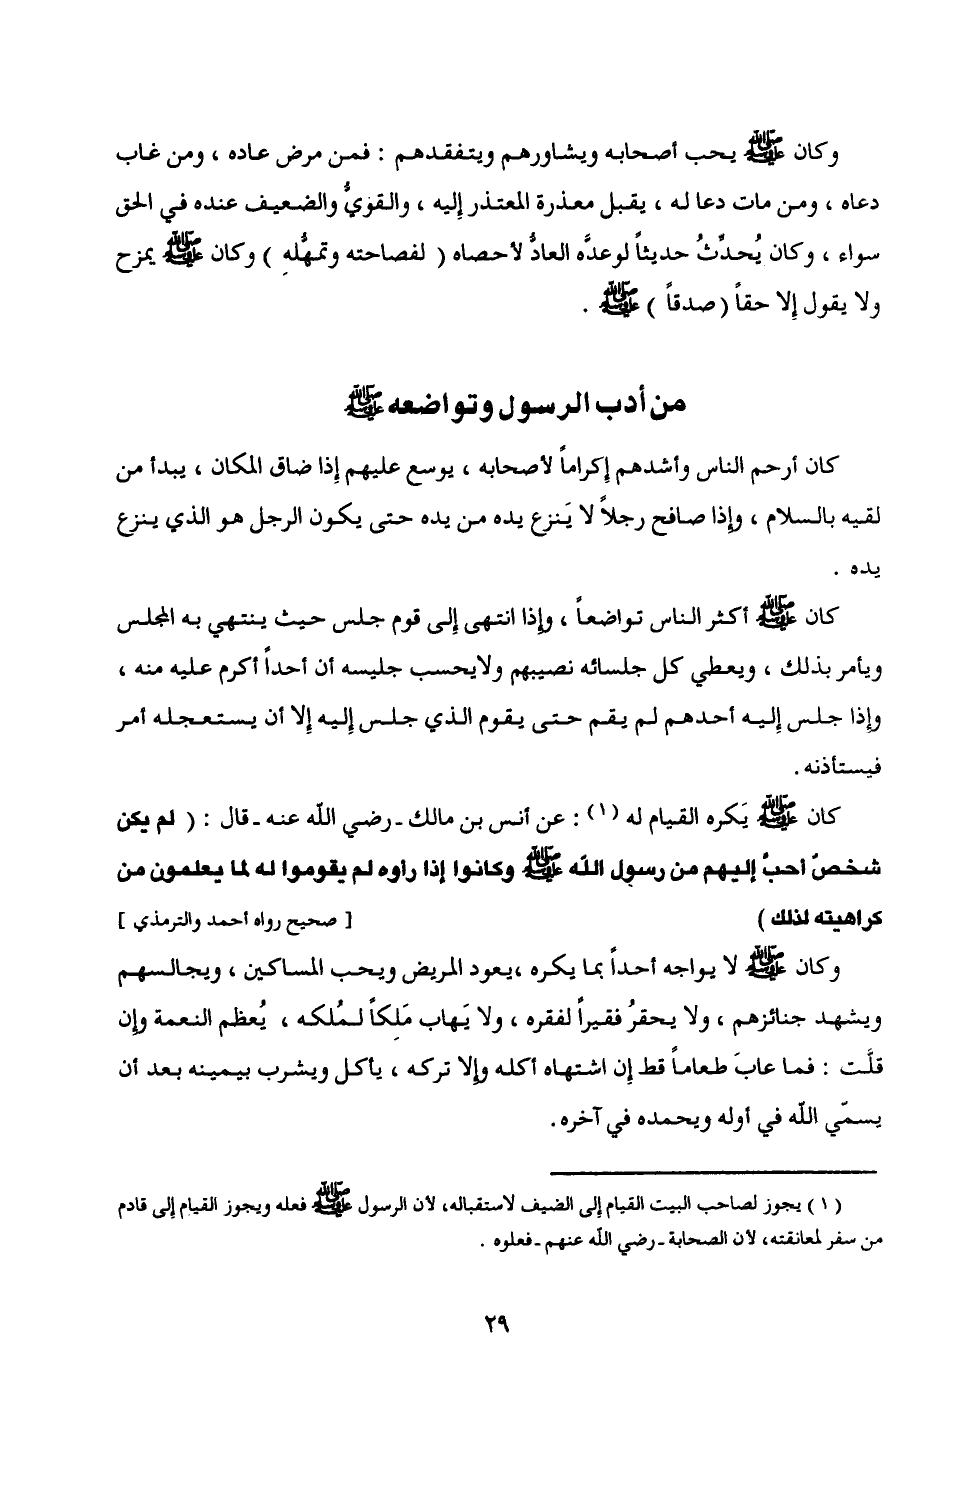 وكان ﷺ يحب أصحابه ويشاورهم ويتفقدهم : فمن مرض عاده ، ومن غاب
دعاه ، ومن مات دعا له ، يقبل معذرة المعتذر إليه ، والقويُّ والضعيف عنده في الحق
سواء ، وكان يُحدِّثُ حديثاً لوعدَّه العادُّ لأحصاه ( لفصاحته وتمهُّله ) وكان ﷺ يمزح
ولا يقول إلا حقاً ( صدقاً ) ﷺ .
من أدب الرسول وتواضعه ﷺ
كان أرحم الناس وأشدهم إكراماً لأصحابه ، يوسع عليهم إذا ضاق المكان ، يبدأ من
لقيه بالسلام ، وإذا صافح رجلاً لا يَنزع يده من يده حتى يكون الرجل هو الذي ينزع
يده .
كان ﷺ أكثر الناس تواضعاً ، وإذا انتهى إلى قوم جلس حيث ينتهي به المجلس
ويأمر بذلك ، ويعطي كل جلسائه نصيبهم ولايحسب جليسه أن أحداً أكرم عليه منه ،
وإذا جلس إليه أحدهم لم يقم حتى يقوم الذي جلس إليه إلا أن يستعجله أمر
فيستأذنه .
كان ﷺ يَكره القيام له (١) : عن أنس بن مالك ـ رضي اللّه عنه ـ قال : ( لم يكن
شخصٌ أحبَّ إليهم من رسول اللّه ﷺ وكانوا إذا رأوه لم يقوموا له لما يعلمون من
كراهيته لذلك ) [ صحيح رواه أحمد والترمذي ]
وكان ﷺ لا يواجه أحداً بما يكره ،يعود المريض ويحب المساكين ، ويجالسهم
ويشهد جنائزهم ، ولا يحقرُ فقيراً لفقره ، ولا يَهاب مَلِكاً لمُلكه ، يُعظم النعمة وإن
قلَّت : فما عابَ طعاماً قط إن اشتهاه أكله وإلا تركه ، يأكل ويشرب بيمينه بعد أن
يسمّي اللّه في أوله ويحمده في آخره .
( ١ ) يجوز لصاحب البيت القيام إلى الضيف لاستقباله، لأن الرسول ﷺ فعله ويجوز القيام إلى قادم
من سفر لمعانقته، لأن الصحابة ـ رضي اللّه عنهم ـ فعلوه .
٢٩